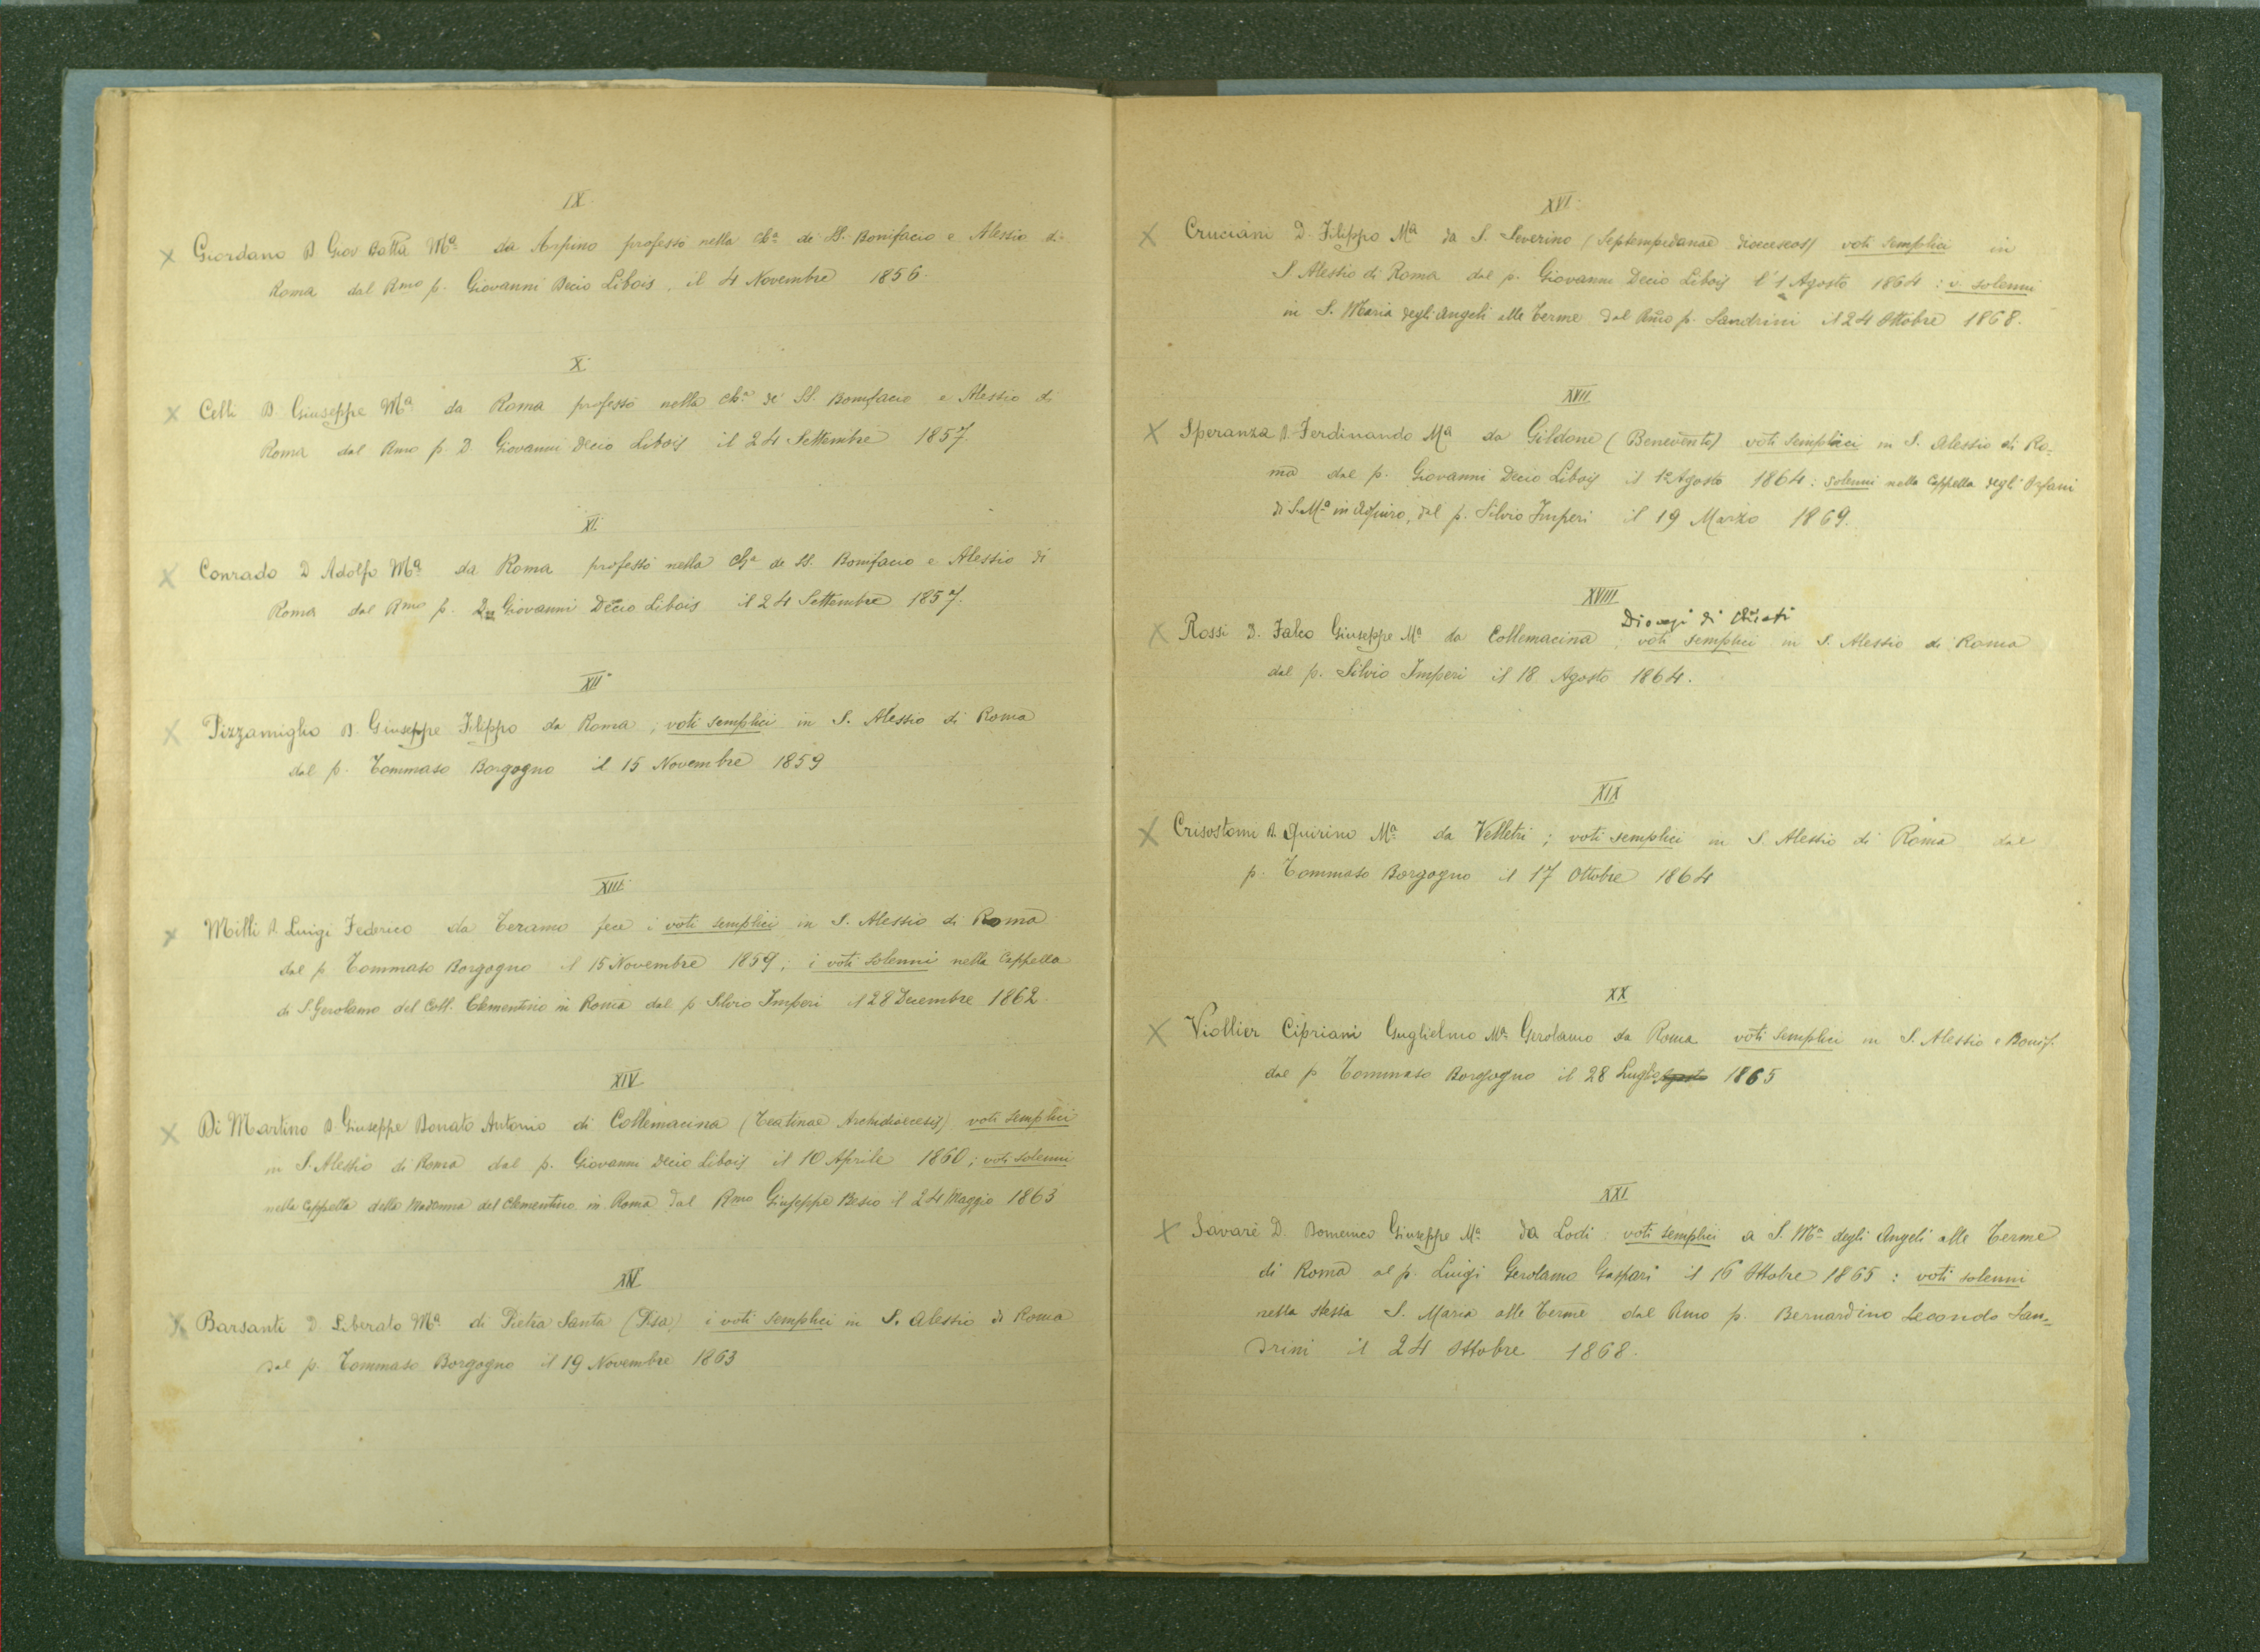 IX.
x Giordano D Giov Batta Mª da Arpino professò nella chª di SS. Bonifacio e Alessio di
Roma dal Rmo p. Giovanni Decio Libois, il 4 Novembre 1856.
X
x Celli D Giuseppe Mª da Roma professò nella chª de' SS. Bonifacio e Alessio di
Roma dal Rmo p. D. Giovanni Decio Libois il 24 Settembre 1857.
XI.
x Conrado D Adolfo Mª da Roma professò nella chª de SS. Bonifacio e Alessio di
Roma dal Rmo p. Giovanni Decio Libois il 24 Settembre 1857.
XII
x Pizzamiglio D. Giuseppe Filippo da Roma, voti semplici in S. Alessio di Roma
dal p. Tommaso Borgogno il 15 Novembre 1859
XIII
x Milli D Luigi Federico da Teramo fece i voti semplici in S. Alessio di Roma
dal p Tommaso Borgogno il 15 Novembre 1859; i voti solenni nella Cappella
di S. Gerolamo del Coll. Clementino in Roma dal p Silvio Imperi il 28 Decembre 1862.
XIV
x Di Martino D. Giuseppe Donato Antonio di Collemacina (Teatinae Archidioecesis) voti semplici
in S. Alessio di Roma dal p. Giovanni Decio Libois il 10 Aprile 1860; voti solenni
nella Cappella della Madonna del Clementino in Roma dal Rmo Giuseppe Besio il 24 Maggio 1863
XV
x Barsanti D Liberato Mª di Pietra Santa (Pisa) i voti semplici in S. Alessio di Roma
dal p. Tommaso Borgogno il 19 Novembre 1863
XVI
x Cruciani D. Filippo Mª da S. Severino (Septempedanae dioeceseos) voti semplici in
S. Alessio di Roma dal p. Giovanni Decio Libois l'1 Agosto 1864: v. solenni
in S. Maria degli Angeli alle Terme dal Rmo p. Sandrini il 24 Ottobre 1868.
XVII
x Speranza D. Ferdinando Mª da Gildone (Benevento) voti semplici in S. Alessio di Ro-
ma dal p. Giovanni Decio Libois il 1º Agosto 1864: solenni nella Cappella degli Orfani
di S. Mª in Aquiro, dal p. Silvio Imperi il 19 Marzo 1869.
XVIII
Diocesi di Chieti
x Rossi D. Falco Giuseppe Mª da Collemacina; voti semplici in S. Alessio di Roma
dal p. Silvio Imperi il 18 Agosto 1864.
XIX
x Crisostomi D. Quirino Mª da Velletri; voti semplici in S. Alessio di Roma dal
p. Tommaso Borgogno il 17 Ottobre 1864
XX
x Viollier Cipriani Guglielmo Mª Gerolamo da Roma voti semplici in S. Alessio e Bonif.
dal p Tommaso Borgogno il 28 Luglio Agosto 1865
XXI
x Savarè D. Domenico Giuseppe Mª da Lodi: voti semplici a S. Mª degli Angeli alle Terme
di Roma al p. Luigi Gerolamo Gaspari il 16 Ottobre 1865: voti solenni
nella stessa S. Maria alle Terme dal Rmo p. Bernardino Secondo San-
drini il 24 Ottobre 1868.